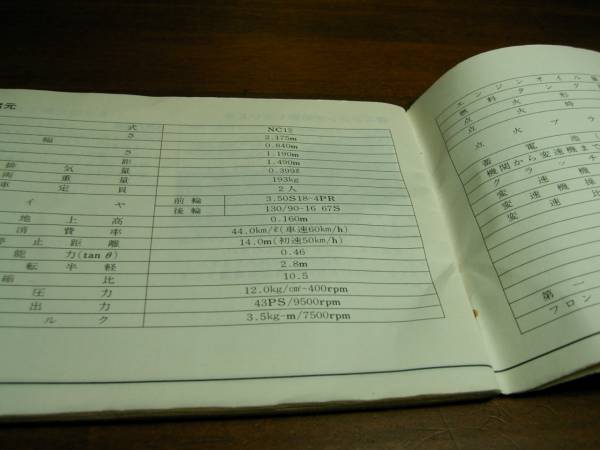 元
式 NC12
さ 2.175m
幅 0.840m
さ 1.190m
距 1.490m
気量 0.399ℓ
両重量 193kg
車定員 2人
イヤ 前輪 3.50S18-4PR
後輪 130/90-16 67S
地上高 0.160m
消費率 44.0km/ℓ(車速60km/h)
停止距離 14.0m(初速50km/h)
能力(tanθ) 0.46
転半径 2.8m
縮比 10.5
圧力 12.0kg/㎠-400rpm
出力 43PS/9500rpm
ルク 3.5kg-m/7500rpm
エンジンオイル
燃料タンク
点火形
点火時
点火プラ
蓄電池(
機関から変速機まで
クラッチ
変速機
変速機操
変速比
第一
フロン